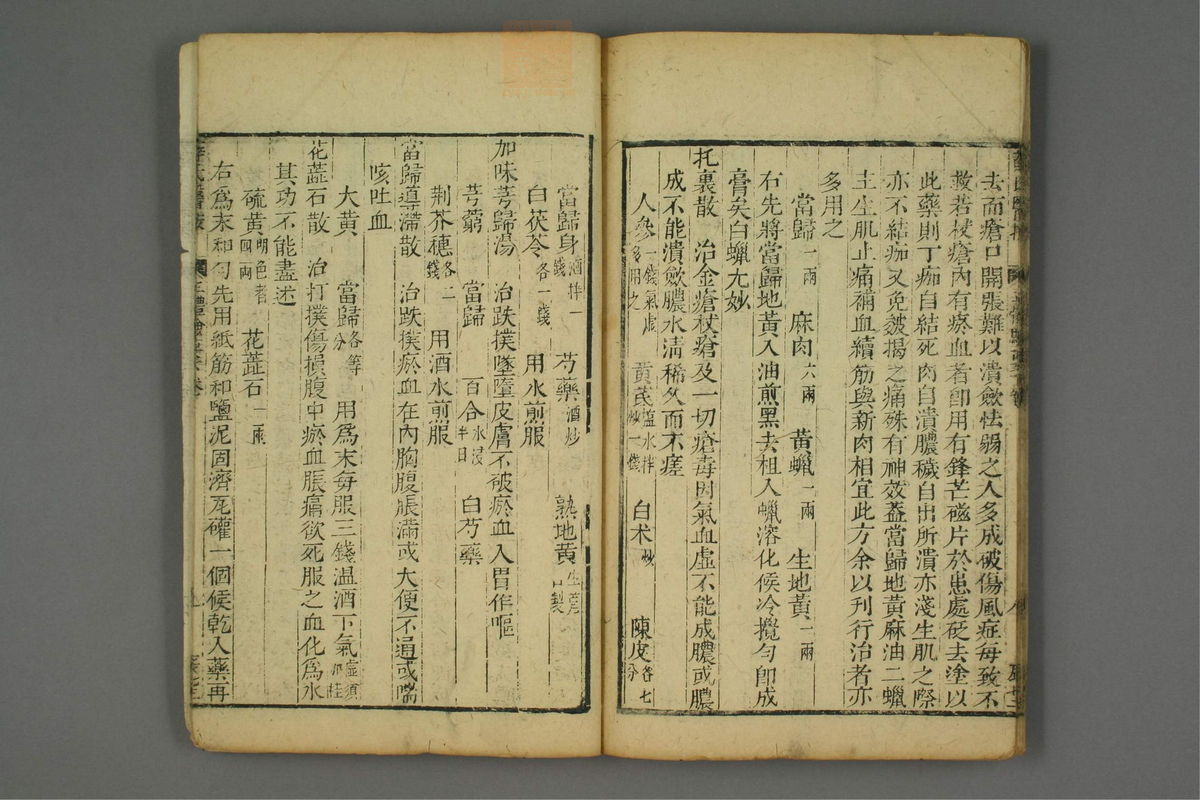 去而瘡口開張難以潰斂怯弱之人多成破傷風症每致不
救若杖瘡內有瘀血者卽用有鋒芒磁片於患處砭去塗以
此藥則丁痂自結死肉自潰膿穢自出所潰亦淺生肌之際
亦不結痂又免皴揭之痛殊有神效蓋當歸地黃麻油二蠟
主生肌止痛補血續筋與新肉相宜此方余以刋行治者亦
多用之
當歸一兩 麻肉六兩 黃蠟一兩 生地黃一兩
右先將當歸地黃入油煎黑去柤入蠟溶化候冷攪勻卽成
膏矣白蠟尢妙
托裏散 治金瘡杖瘡及一切瘡毒因氣血虛不能成膿或膿
成不能潰斂膿水淸稀久而不瘥
人參一錢氣虛多用之 黃芪鹽水拌炒一錢 白朮炒 陳皮各七分
當歸身酒拌一錢 芍藥酒炒 熟地黃生者自製
白茯苓各一錢 用水煎服
加味芎歸湯 治跌撲墜墮皮膚不破瘀血入胃作嘔
芎藭 當歸 百合水浸半日 白芍藥
荆芥穗各二錢 用酒水煎服
當歸導滯散 治跌撲瘀血在內胸腹脹滿或大便不通或喘
咳吐血
大黃 當歸各等分 用爲末每服三錢溫酒下氣虛須加桂
花蕋石散 治打撲傷損腹中瘀血脹痛欲死服之血化爲水
其功不能盡述
硫黃明色者四兩 花蕋石一兩
右爲末和勻先用紙筋和鹽泥固濟瓦礶一個候乾入藥再